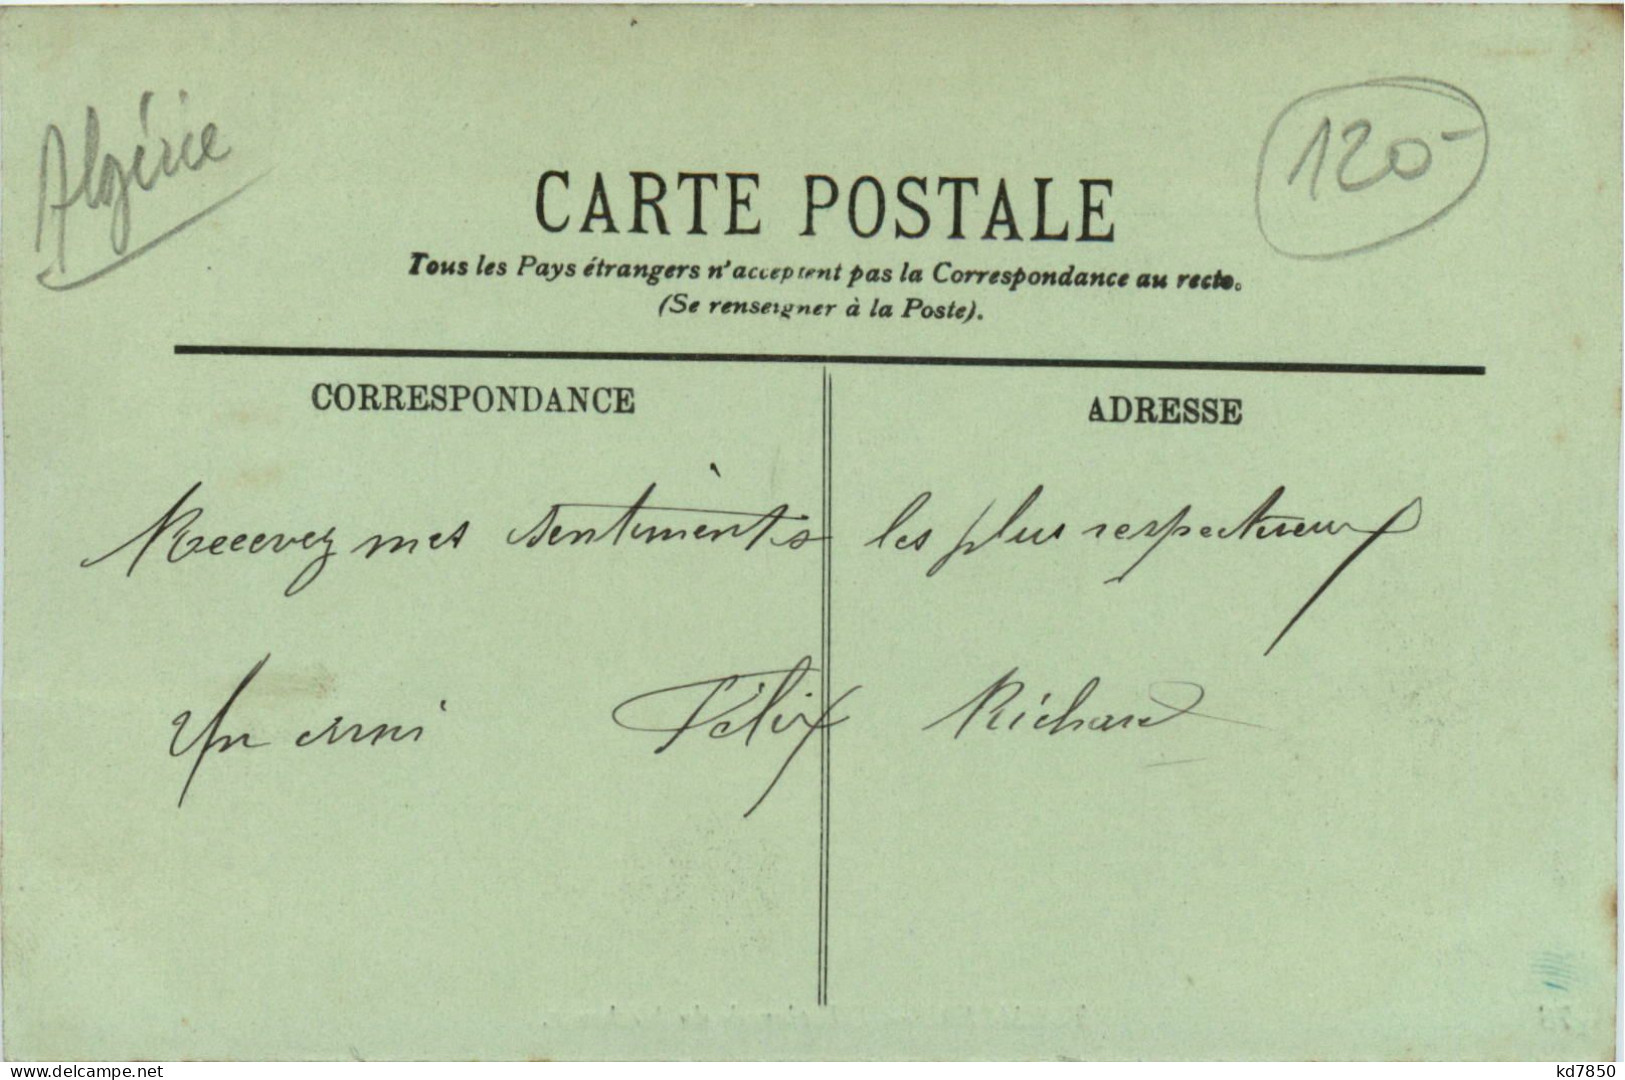 Algérie
120-
CARTE POSTALE
Tous les Pays étrangers n'acceptent pas la Correspondance au recto.
(Se renseigner à la Poste).
CORRESPONDANCE
ADRESSE
Recevez mes sentiments les plus respectueux
Un ami Félix Richard
delcampe.net
kd7850